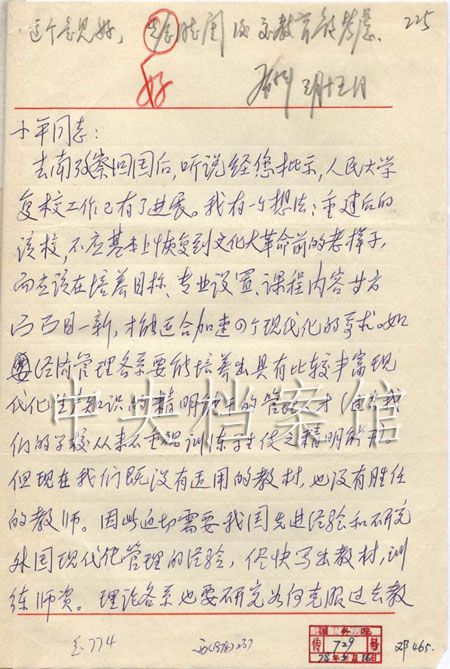 这个意见好，
好
三月十五日
225
小平同志：
去南考察回国后，听说经您批示，人民大学
复校工作已有了进展。我有一个想法：重建后的
该校，不应基本上恢复到文化大革命前的老样子，
而应该在培养目标、专业设置、课程内容等方
面面目一新，才能适合加速四个现代化的要求。如
经济管理各系要能培养出具有比较丰富现
代化生产知识的精明能干的管理人才（过去我
们的学校从来不重视训练学生使之精明能干）。
但现在我们既没有适用的教材，也没有胜任
的教师。因此迫切需要我国先进经验和研究
外国现代化管理的经验，尽快写出教材，训
练师资。理论各系也要研究如何克服过去教
中央档案馆
774
国务院
传 729 号
465.